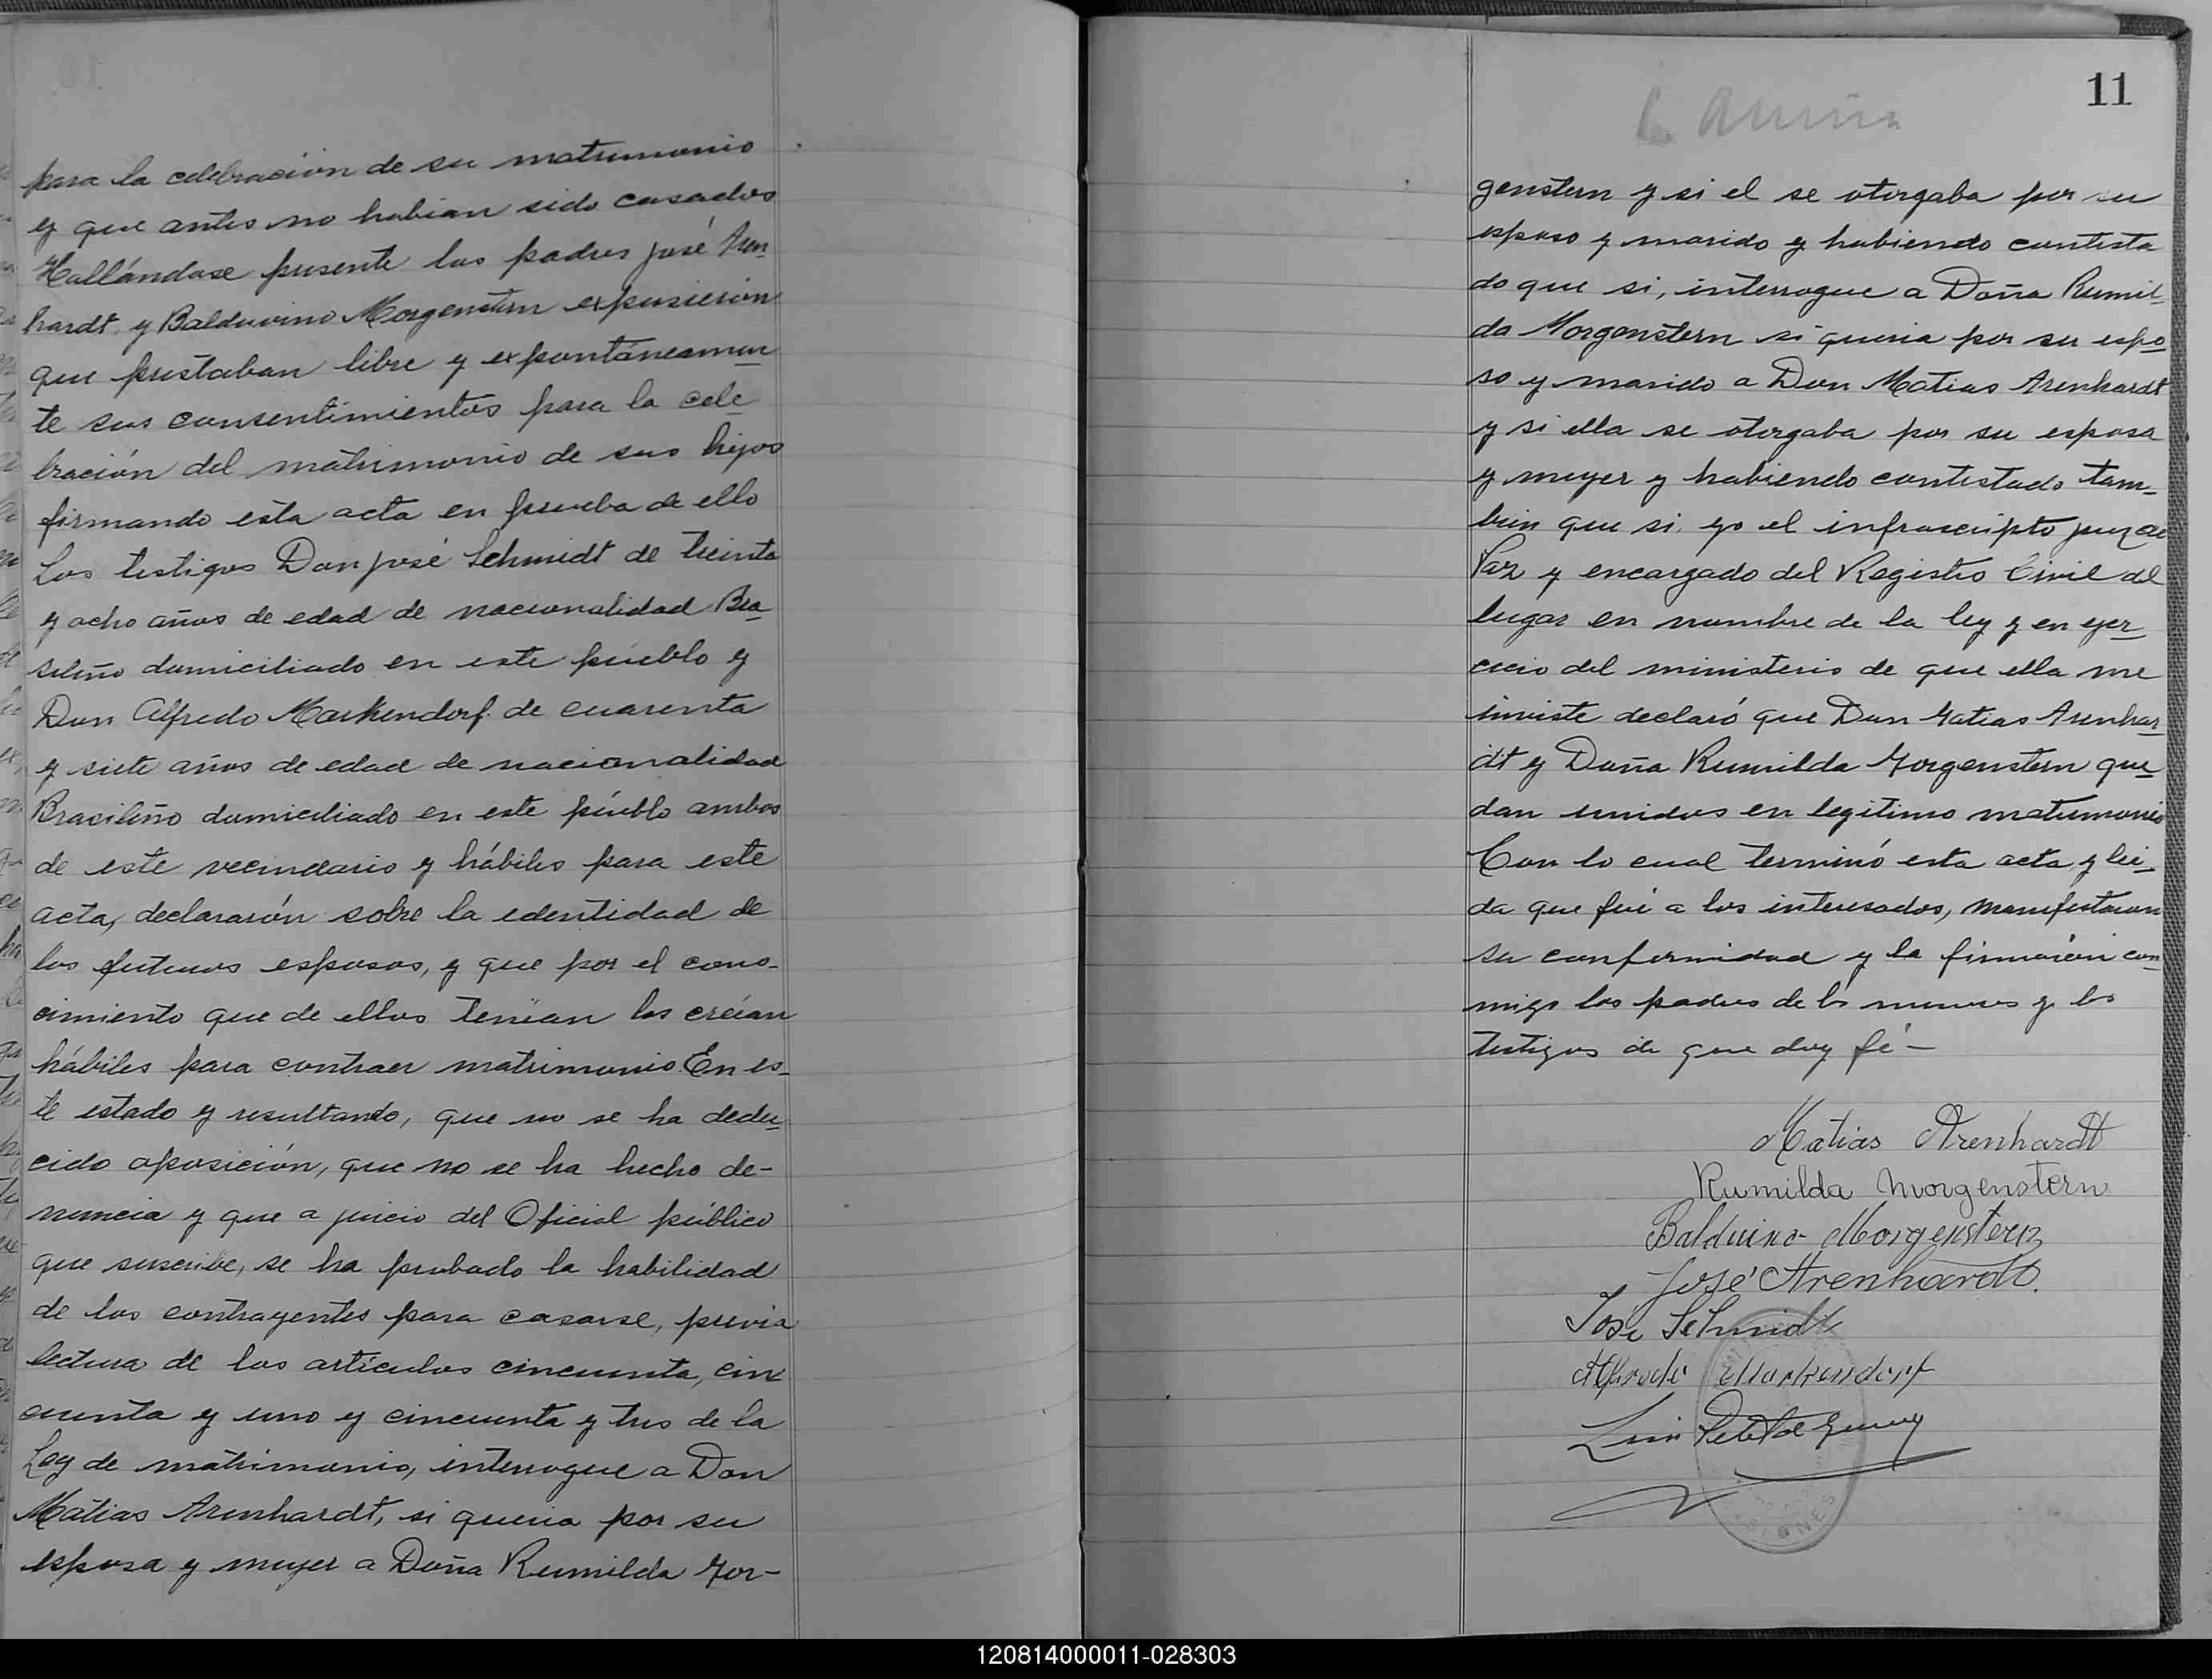 para la celebración de su matrimonio
y que antes no habian sido casados
Hallándose presente los padres José Aren
hardt y Balduvino Morgenstern expusieron
que prestaban libre y expontáneamen
te sus consentimientos para la cele
bración del matrimonio de sus hijos
firmando esta acta en prueba de ello
Los testigos Don José Schmidt de treinta
y ocho años de edad de nacionalidad Bra
sileño domiciliado en este pueblo y
Don Alfredo Markendorf de cuarenta
y siete años de edad de nacionalidad
Brasileño domiciliado en este pueblo ambos
de este vecindario y hábiles para este
acta, declararón sobre la identidad de
los futuros esposos, y que por el cono-
cimiento que de ellos tenían los creían
hábiles para contraer matrimonio. En es-
te estado y resultando, que no se ha dedu
cido oposición, que no se ha hecho de-
nuncia y que a juicio del Oficial público
que suscribe, se ha probado la habilidad
de los contrayentes para casarse, previa
lectura de los artículos cincuenta, cin
cuenta y uno y cincuenta y tres de la
Ley de matrimonio, interrogue a Don
Matias Arenhardt, si queria por su
esposa y muyer a Doña Rumilda Mor-
11
genstern y si el se otorgaba por su
esposo y marido y habiendo contesta
do que si, interrogue a Doña Rumil
da Morgenstern si queria por su espo
so y marido a Don Matias Arenhardt
y si ella se otorgaba por su esposa
y muyer y habiendo contestado tam-
bien que si, yo el infrascripto juez de
Paz y encargado del Registro Civil del
lugar en nombre de la ley y en ejer
cicio del ministerio de que ella me
inviste declaró que Don Matias Arenhar
dt y Doña Rumilda Morgenstern que
dan unidos en legitimo matrimonio
Con lo cual terminó esta acta, y lei-
da que fué a los interesados, manifestaron
su conformidad y la firmarón con
migo los padres de los menores y los
testigos de que doy fé-
Matias Arenhardt
Rumilda Morgenstern
Balduino Morgenstern
José Arenhardt.
José Schmidt
Alfredo Markendorf
Luis
120814000011-028303